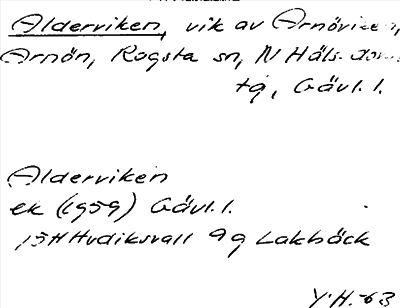 Alderviken, vik av Arnöviken,
Arnön, Rogsta sn, N Häls. doms.
tg, Gävl. l.
Alderviken
ek (1959) Gävl. l.
15H Hudiksvall 9g Lakbäck
Y.H. -63